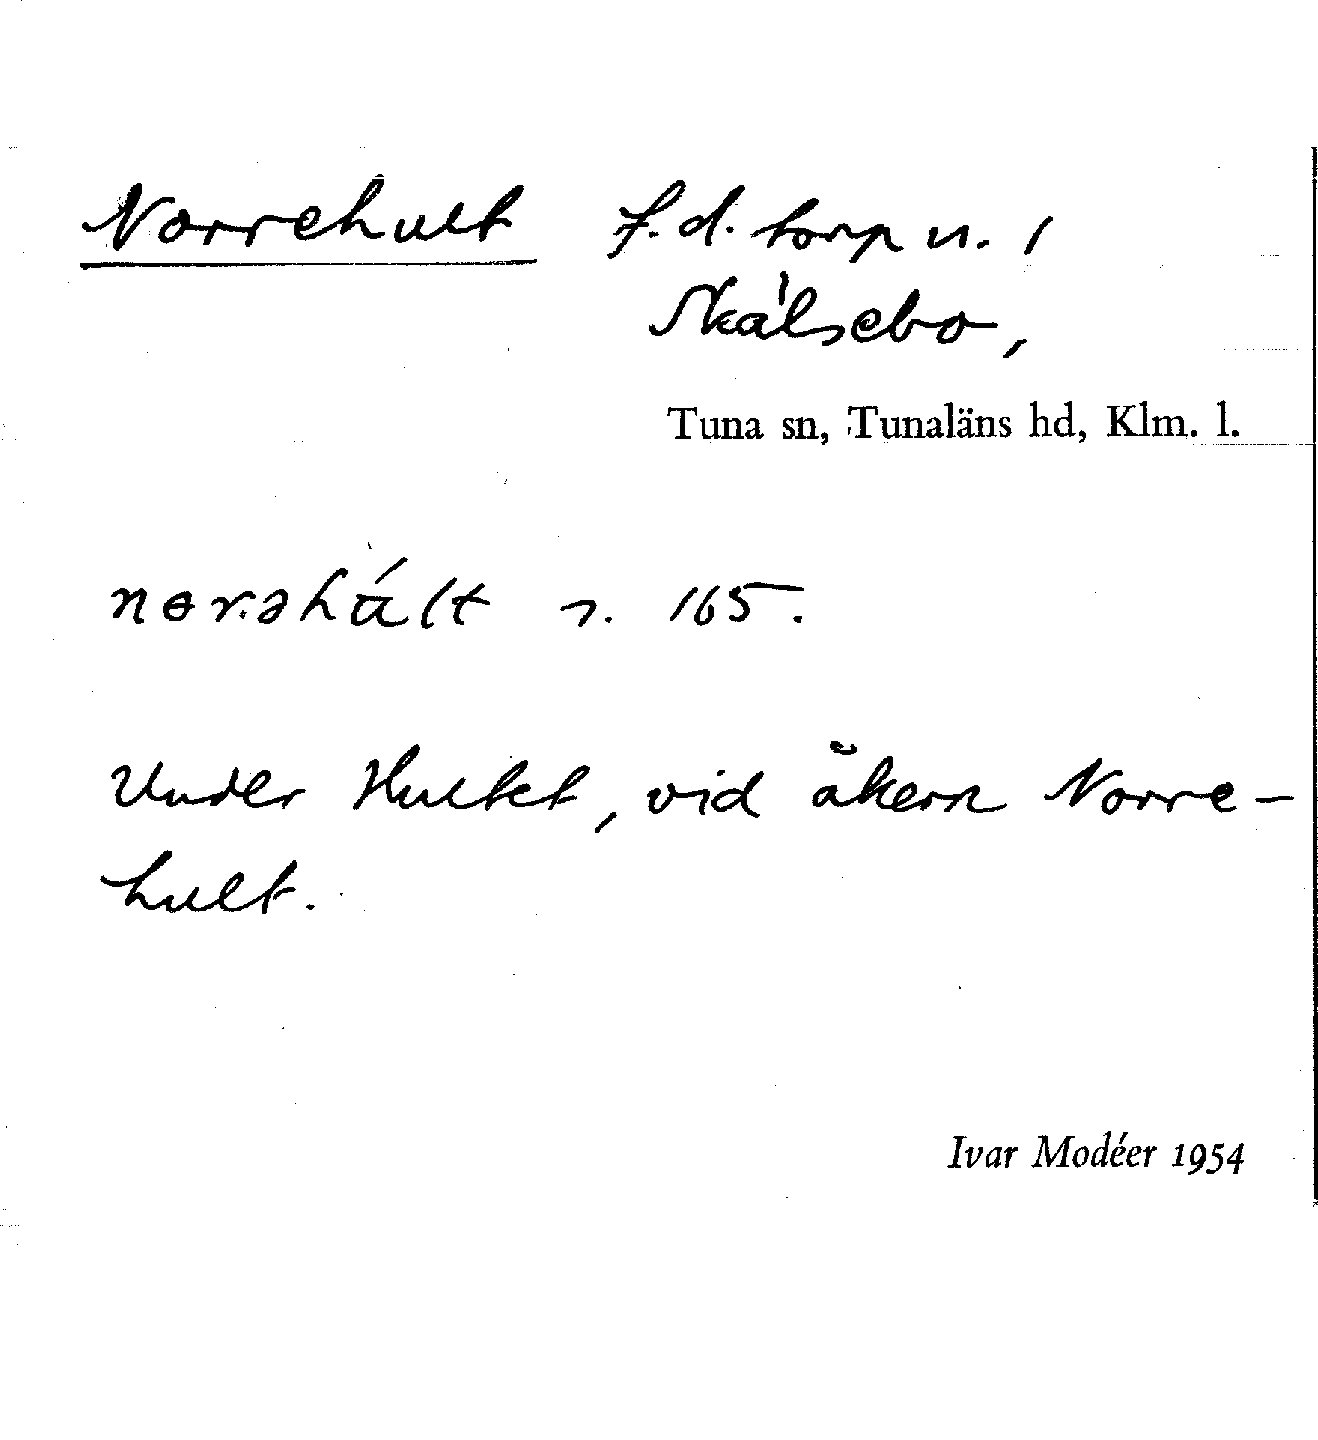 Norrehult f.d. torp u. 1
Skålsebo,
Tuna sn, Tunaläns hd, Klm. l.
nɵr.əhált s. 165.
Under Hultet, vid åkern Norre-
hult.
Ivar Modéer 1954